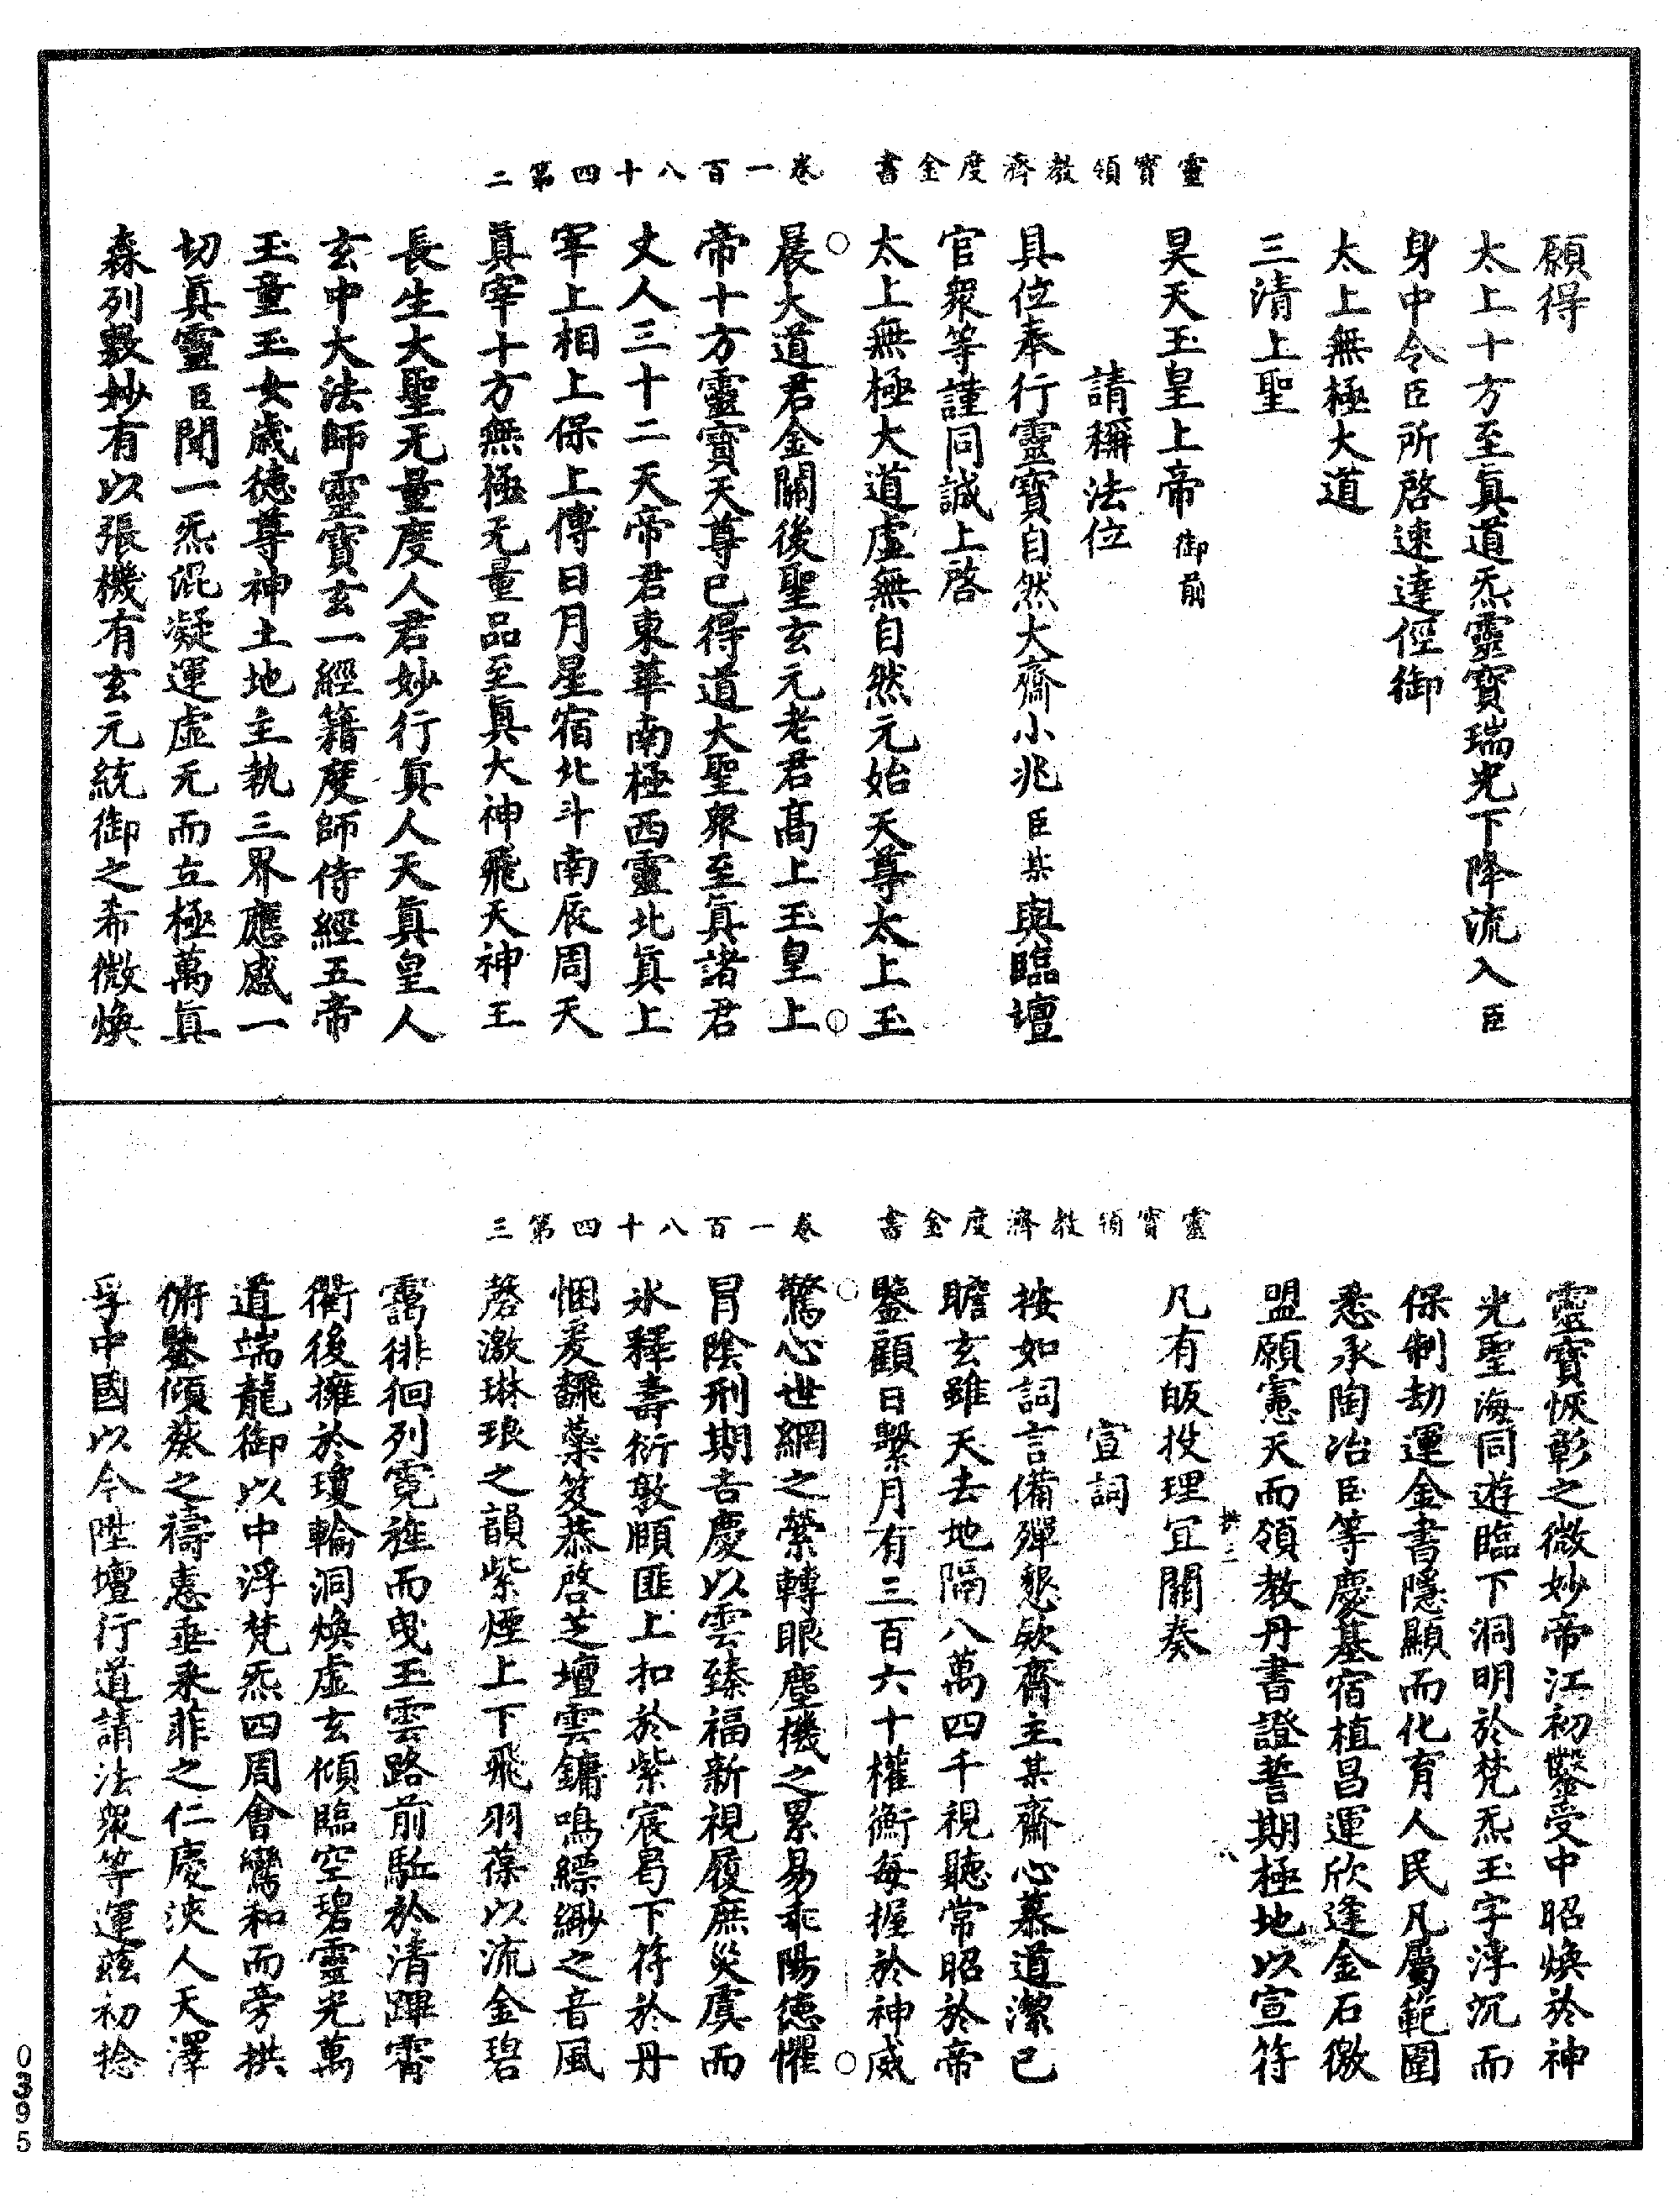 靈寶領教濟度金書　卷一百八十四第二
願得
太上十方至眞道炁靈寶瑞光下降流入臣
身中令臣所啓速達徑御
太上無極大道
三清上聖
昊天玉皇上帝御前
請稱法位
具位奉行靈寶自然大齋小兆臣某與臨壇
官衆等謹同誠上啓
太上無極大道虛無自然元始天尊太上玉
晨大道君金闕後聖玄元老君高上玉皇上
帝十方靈寶天尊已得道大聖衆至眞諸君
丈人三十二天帝君東華南極西靈北眞上
宰上相上保上傅日月星宿北斗南辰周天
眞宰十方無極无量品至眞大神飛天神王
長生大聖无量度人君妙行眞人天眞皇人
玄中大法師靈寶玄一經籍度師侍經五帝
玉童玉女歲德尊神土地主執三界應感一
切眞靈臣聞一炁混凝運虛无而立極萬眞
森列數妙有以張機有玄元統御之希微煥
靈寶領教濟度金書　卷一百八十四第三
靈寶恢彰之微妙帝江初鑿受中昭煥於神
光聖海同遊臨下洞明於梵炁玉字浮沉而
保制劫運金書隱顯而化育人民凡屬範圍
悉承陶冶臣等慶基宿植昌運欣逢金石徼
盟願憲天而領教丹書證誓期極地以宣符
凡有皈投理宜關奏
宣詞
按如詞言備殫懇欵齋主某齋心慕道潔己
瞻玄雖天去地隔八萬四千視聽常昭於帝
鑒顧日繫月有三百六十權衡每握於神威
驚心世網之縈轉眼塵機之累易乖陽德懼
冒陰刑期吉慶以雲臻福新視履庶災虞而
氷釋壽衍敦頤匪上扣於紫宸曷下符於丹
悃爰飜蘂笈恭啓芝壇雲鏞鳴縹緲之音風
磬激琳琅之韻紫煙上下飛羽葆以流金碧
靄徘徊列霓旌而曳玉雲路前駈於清蹕霄
衢後擁於瓊輪洞煥虛玄傾臨空碧靈光萬
道端龍御以中浮梵炁四周會鸞和而旁拱
俯鑒傾葵之禱惠垂釆菲之仁慶浹人天澤
孚中國以今陞壇行道請法衆等運茲初捻
0395